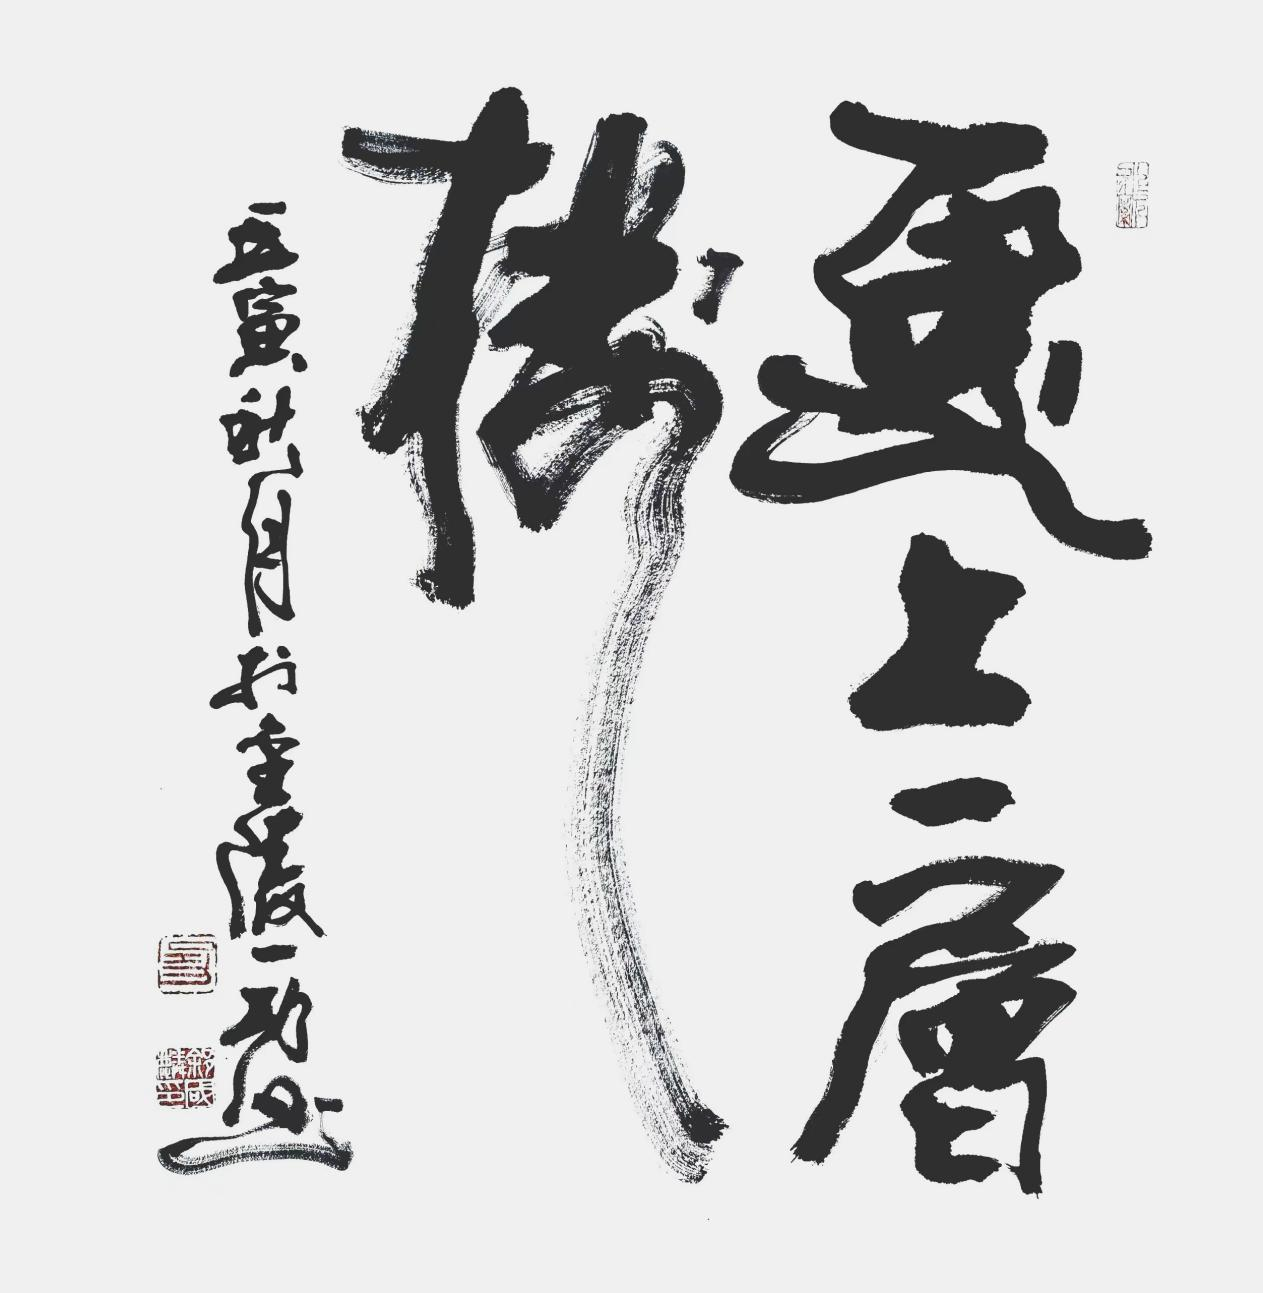 更上一層
樓
寅秋月於金陵一